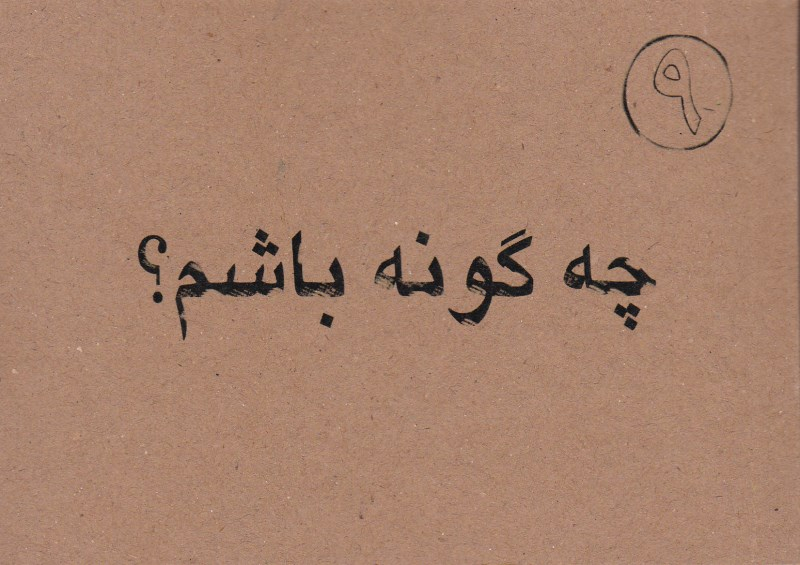 ۹
چه گونه باشم؟